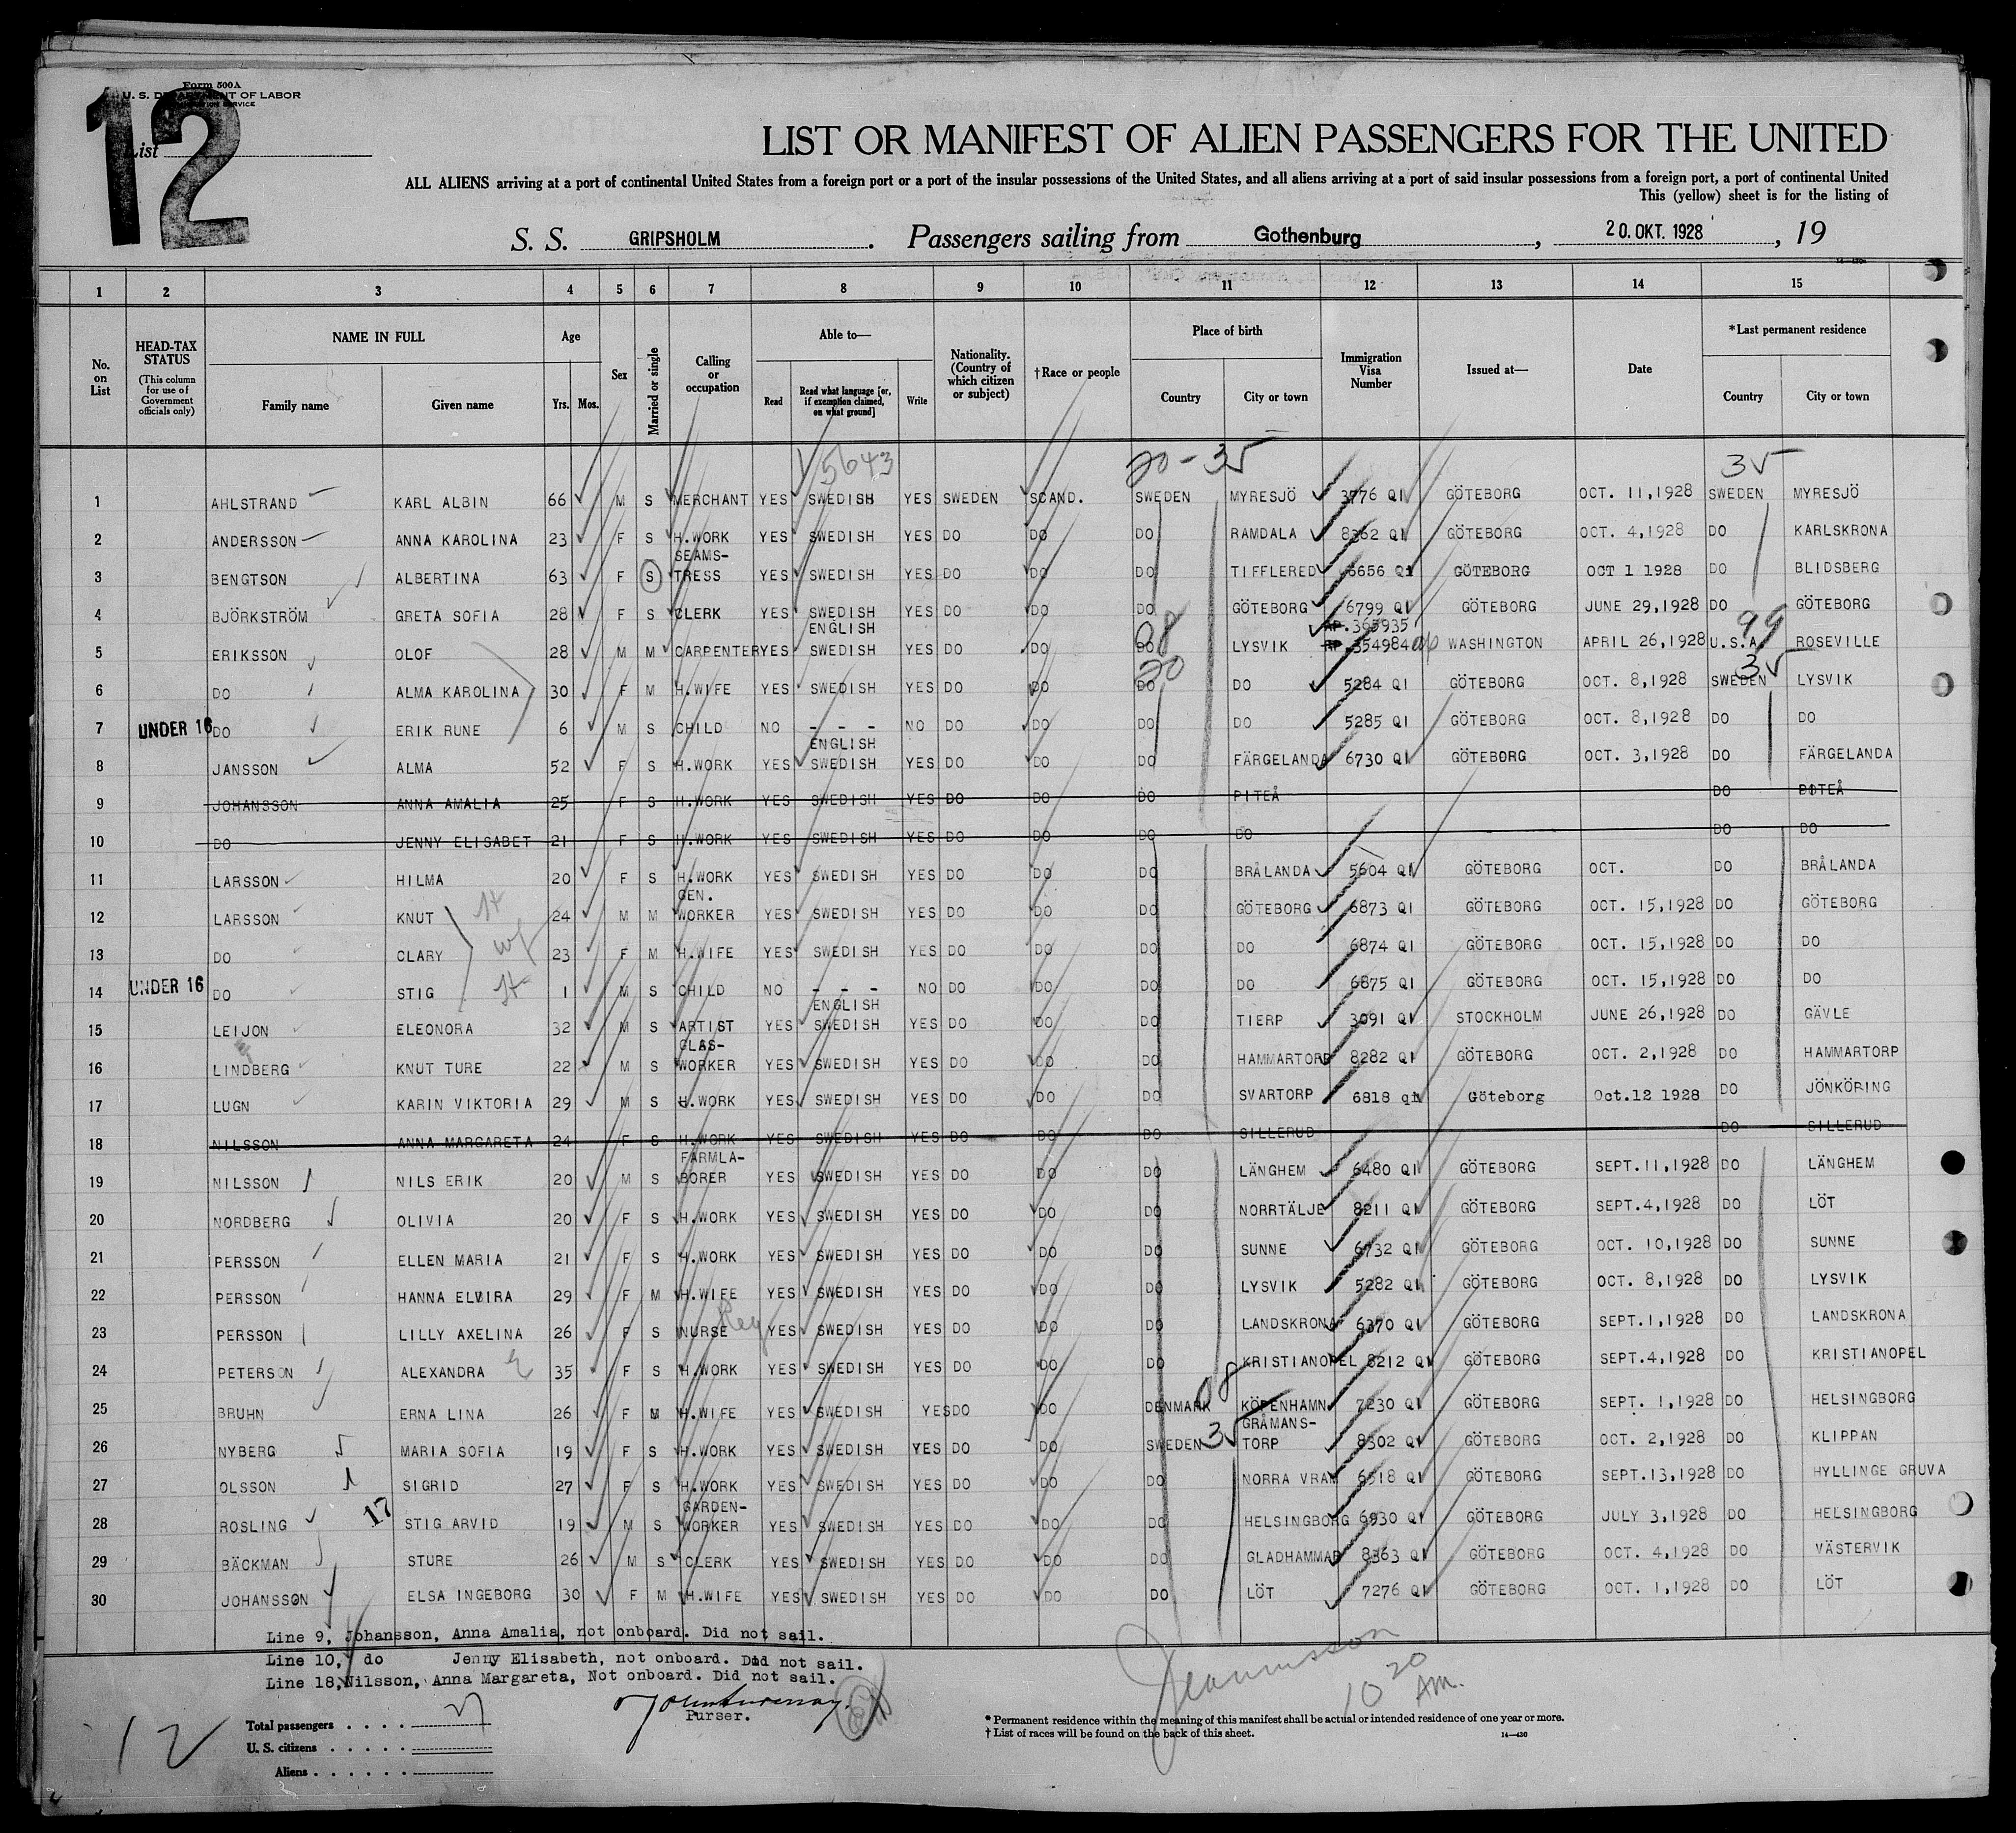 12
Form 500A
U. S. DEPARTMENT OF LABOR
SERVICE
List
LIST OR MANIFEST OF ALIEN PASSENGERS FOR THE UNITED
ALL ALIENS arriving at a port of continental United States from a foreign port or a port of the insular possessions of the United States, and all aliens arriving at a port of said insular possessions from a foreign port, a port of continental United
This (yellow) sheet is for the listing of
S. S. GRIPSHOLM . Passengers sailing from Gothenburg , 20. OKT. 1928 , 19
14—430
1 2 3 4 5 6 7 8 9 10 11 12 13 14 15
No. on List
HEAD-TAX STATUS (This column for use of Government officials only)
NAME IN FULL Family name Given name
Age Yrs. Mos.
Sex
Married or single
Calling or occupation
Able to— Read Read what language [or, if exemption claimed, on what ground] Write
Nationality. (Country of which citizen or subject)
†Race or people
Place of birth Country City or town
Immigration Visa Number
Issued at—
Date
*Last permanent residence Country City or town
5643 20-35 35
1 AHLSTRAND KARL ALBIN 66 M S MERCHANT YES SWEDISH YES SWEDEN SCAND. SWEDEN MYRESJÖ 3776 QI GÖTEBORG OCT. 11,1928 SWEDEN MYRESJÖ
2 ANDERSSON ANNA KAROLINA 23 F S H.WORK YES SWEDISH YES DO DO DO RAMDALA 8362 QI GÖTEBORG OCT. 4,1928 DO KARLSKRONA
3 BENGTSON ALBERTINA 63 F S SEAMS-TRESS YES SWEDISH YES DO DO DO TIFFLERED 6656 QI GÖTEBORG OCT 1 1928 DO BLIDSBERG
4 BJÖRKSTRÖM GRETA SOFIA 28 F S CLERK YES SWEDISH YES DO DO DO GÖTEBORG 6799 QI GÖTEBORG JUNE 29,1928 DO GÖTEBORG
08 RP.365935 99
5 ERIKSSON OLOF 28 M M CARPENTER YES ENGLISH SWEDISH YES DO DO DO LYSVIK RP.354984 WASHINGTON APRIL 26,1928 U.S.A. ROSEVILLE
20 35
6 DO ALMA KAROLINA 30 F M H.WIFE YES SWEDISH YES DO DO DO DO 5284 QI GÖTEBORG OCT. 8,1928 SWEDEN LYSVIK
7 UNDER 16 DO ERIK RUNE 6 M S CHILD NO - - - NO DO DO DO DO 5285 QI GÖTEBORG OCT. 8,1928 DO DO
8 JANSSON ALMA 52 F S H.WORK YES ENGLISH SWEDISH YES DO DO DO FÄRGELANDA 6730 QI GÖTEBORG OCT. 3,1928 DO FÄRGELANDA
9 JOHANSSON ANNA AMALIA 25 F S H.WORK YES SWEDISH YES DO DO DO PITEÅ DO POTEÅ
10 DO JENNY ELISABET 21 F S H.WORK YES SWEDISH YES DO DO DO DO DO DO
11 LARSSON HILMA 20 F S H.WORK YES SWEDISH YES DO DO DO BRÅLANDA 5604 QI GÖTEBORG OCT. DO BRÅLANDA
12 LARSSON KNUT 24 M M GEN. WORKER YES SWEDISH YES DO DO DO GÖTEBORG 6873 QI GÖTEBORG OCT. 15,1928 DO GÖTEBORG
13 DO CLARY wf 23 F M H.WIFE YES SWEDISH YES DO DO DO DO 6874 QI GÖTEBORG OCT. 15,1928 DO DO
14 UNDER 16 DO STIG 1 M S CHILD NO - - - NO DO DO DO DO 6875 QI GÖTEBORG OCT. 15,1928 DO DO
15 LEIJON ELEONORA 32 M S ARTIST YES ENGLISH SWEDISH YES DO DO DO TIERP 3091 QI STOCKHOLM JUNE 26,1928 DO GÄVLE
16 LINDBERG KNUT TURE 22 M S GLAS-WORKER YES SWEDISH YES DO DO DO HAMMARTORP 8282 QI GÖTEBORG OCT. 2,1928 DO HAMMARTORP
17 LUGN KARIN VIKTORIA 29 M S H.WORK YES SWEDISH YES DO DO DO SVARTORP 6818 QI Göteborg Oct.12 1928 DO JÖNKÖPING
18 NILSSON ANNA MARGARETA 24 F S H.WORK YES SWEDISH YES DO DO DO SILLERUD DO SILLERUD
19 NILSSON NILS ERIK 20 M S FARMLA-BORER YES SWEDISH YES DO DO DO LÄNGHEM 6480 QI GÖTEBORG SEPT.11,1928 DO LÄNGHEM
20 NORDBERG OLIVIA 20 F S H.WORK YES SWEDISH YES DO DO DO NORRTÄLJE 8211 QI GÖTEBORG SEPT.4,1928 DO LÖT
21 PERSSON ELLEN MARIA 21 F S H.WORK YES SWEDISH YES DO DO DO SUNNE 6732 QI GÖTEBORG OCT. 10,1928 DO SUNNE
22 PERSSON HANNA ELVIRA 29 F M H.WIFE YES SWEDISH YES DO DO DO LYSVIK 5282 QI GÖTEBORG OCT. 8,1928 DO LYSVIK
23 PERSSON LILLY AXELINA 26 F S NURSE YES SWEDISH YES DO DO DO LANDSKRONA 6370 QI GÖTEBORG SEPT.1,1928 DO LANDSKRONA
24 PETERSON ALEXANDRA 35 F S H.WORK YES SWEDISH YES DO DO DO KRISTIANOPEL 8212 QI GÖTEBORG SEPT.4,1928 DO KRISTIANOPEL
08
25 BRUHN ERNA LINA 26 F M H.WIFE YES SWEDISH YES DO DO DENMARK KÖPENHAMN 7230 QI GÖTEBORG SEPT. 1,1928 DO HELSINGBORG
35
26 NYBERG MARIA SOFIA 19 F S H.WORK YES SWEDISH YES DO DO SWEDEN GRÅMANS-TORP 8302 QI GÖTEBORG OCT. 2,1928 DO KLIPPAN
27 OLSSON SIGRID 27 F S H.WORK YES SWEDISH YES DO DO DO NORRA VRAM 6518 QI GÖTEBORG SEPT.13,1928 DO HYLLINGE GRUVA
28 ROSLING 17 STIG ARVID 19 M S GARDEN-WORKER YES SWEDISH YES DO DO DO HELSINGBORG 6930 QI GÖTEBORG JULY 3,1928 DO HELSINGBORG
29 BÄCKMAN STURE 26 M S CLERK YES SWEDISH YES DO DO DO GLADHAMMAR 8363 QI GÖTEBORG OCT. 4,1928 DO VÄSTERVIK
30 JOHANSSON ELSA INGEBORG 30 F M H.WIFE YES SWEDISH YES DO DO DO LÖT 7276 QI GÖTEBORG OCT. 1,1928 DO LÖT
Line 9, Johansson, Anna Amalia, not onboard. Did not sail.
Line 10, do Jenny Elisabeth, not onboard. Did not sail.
Line 18, Nilsson, Anna Margareta, Not onboard. Did not sail.
Purser.
10 20 AM.
12
Total passengers . . . . 27
U. S. citizens . . . . .
Aliens . . . . . .
* Permanent residence within the meaning of this manifest shall be actual or intended residence of one year or more.
† List of races will be found on the back of this sheet.
14—430